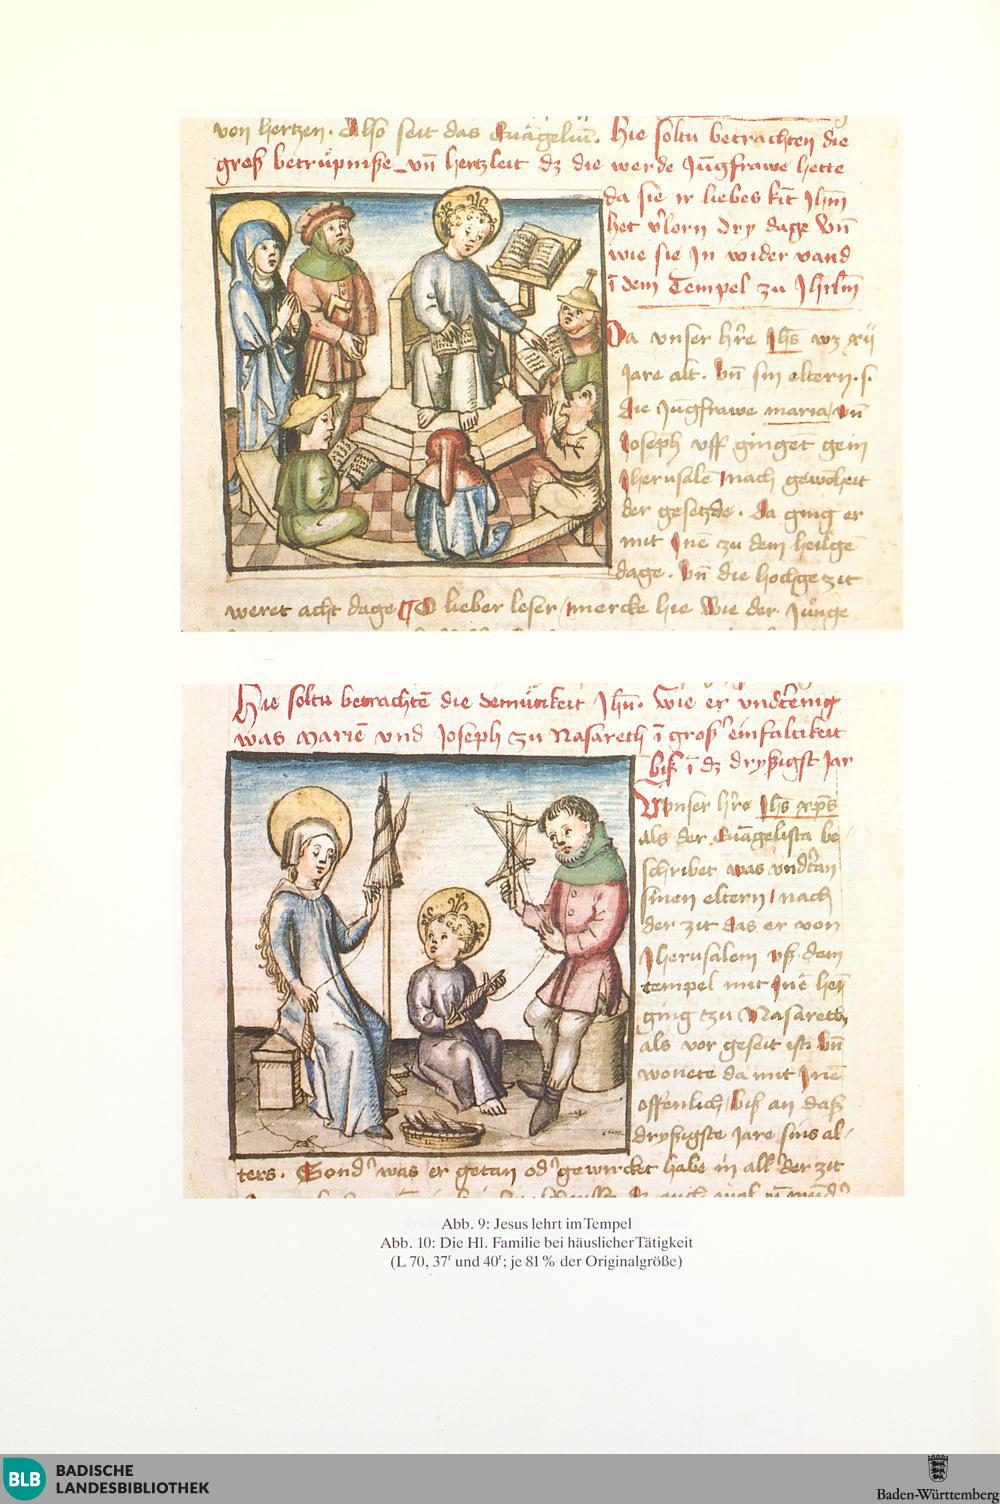 von hertzen. Also seit das Euãgeliũ. Hie soltu betrachten die
groß betrüpniße vñ hertzleit dz die werde Jũgfrawe hette
da sie ir liebes kĩt Jhm̃
het v'lorn dry dage Vñ
wie sie Jn wider vand
ĩ dem Tempel zu Jhrlm̃
Da vnser h're Jhs̃ wz xij
Jare alt. Vñ sin eltern. s.
die Jũgfrawe maria, vñ
Joseph vff gingẽt gein
Jherusalẽ nach gewõheit
der gesetzde. Da ging er
mit Jnẽ zu dem heilgẽ
dage. Vñ die hochgezit
weret acht dage ¶ O lieber leser, mercke hie Wie der Junge
Hie soltu betrachtẽ die demütikeit Jhũ. Wie er vndertenig
was Mariẽ vnd Joseph zu Nasareth ĩ groß' einfaltikeit
biß ĩ dz dryßigst Jar
Vnser h're Jhs̃ xp̃s
als der Euãgelista be-
schribet was vndtan
sinen eltern, nach
der zit das er von
Jherusalem vß dem
tempel mit Jnẽ hen
ging tzu Nasareth
als vor geseit ist, vñ
wonete da mit Jnẽ
offenlich, biß an daß
dryßigste Jare sins al-
ters. Sond' was er getan od' gewircket habe in all' der zit
Abb. 9: Jesus lehrt im Tempel
Abb. 10: Die Hl. Familie bei häuslicher Tätigkeit
(L 70, 37r und 40r; je 81 % der Originalgröße)
BLB BADISCHE
LANDESBIBLIOTHEK
Baden-Württemberg